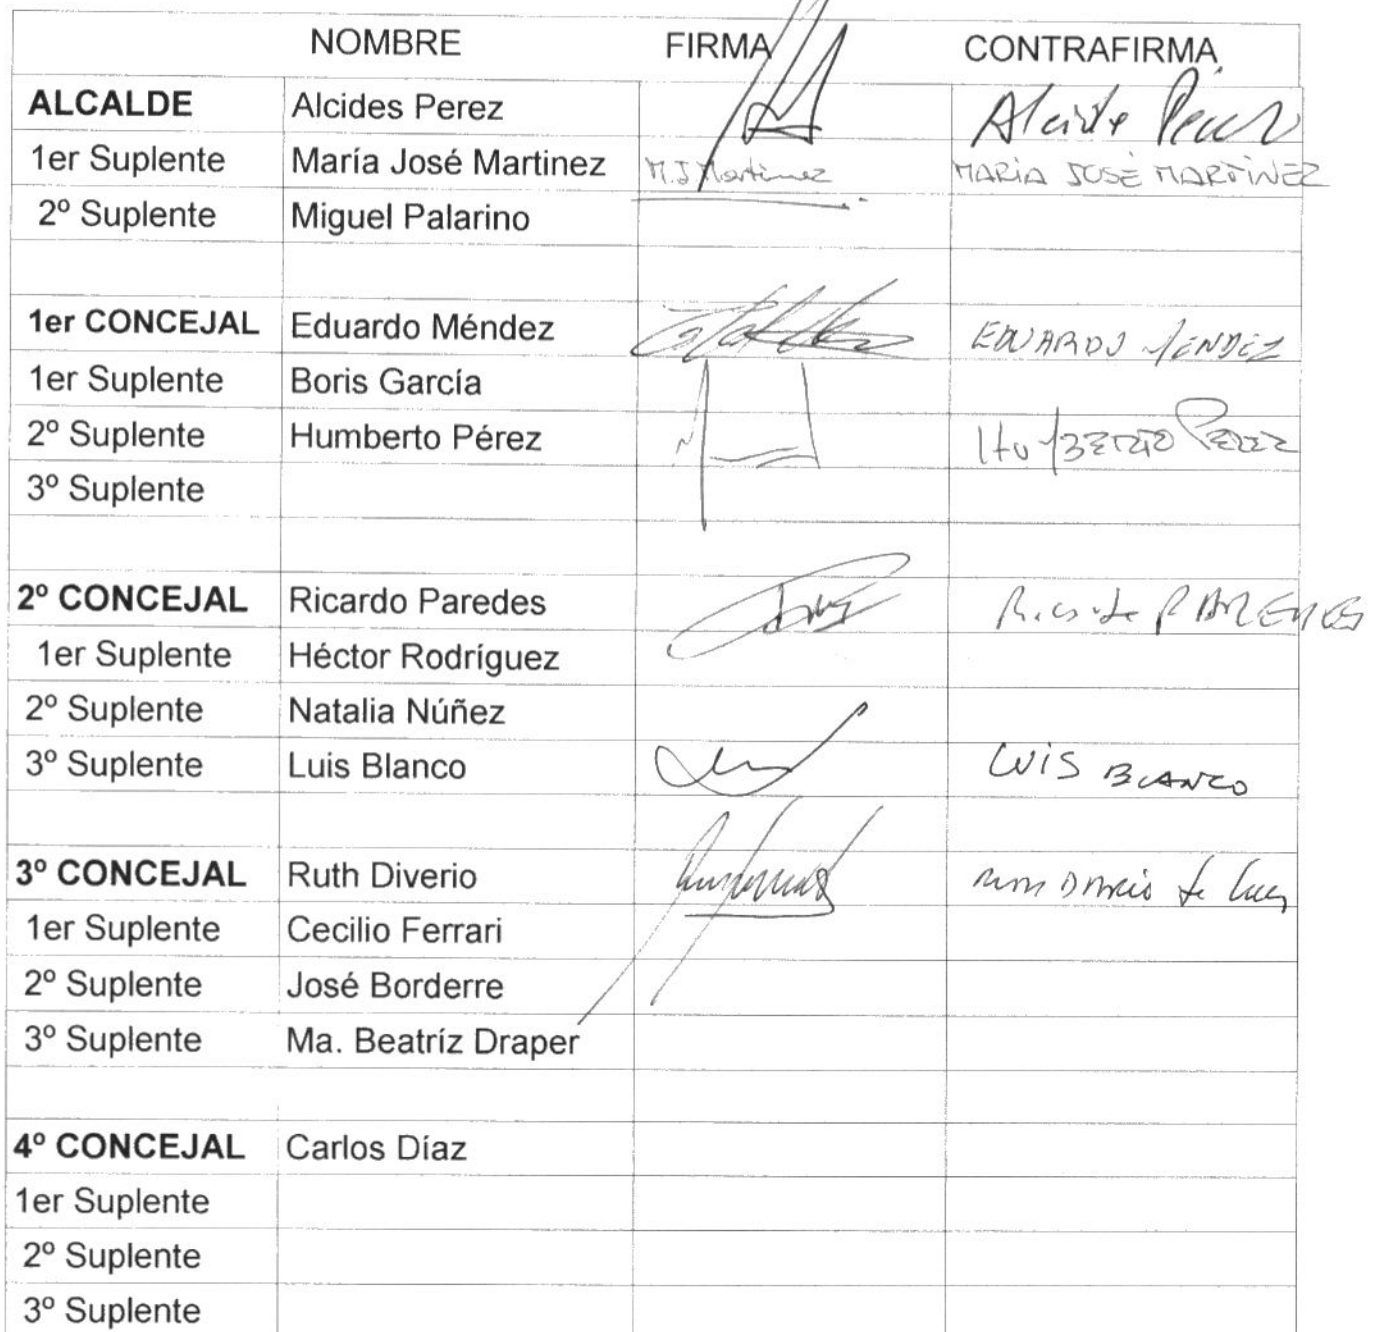 NOMBRE FIRMA CONTRAFIRMA
ALCALDE Alcides Perez Alcide Perez
1er Suplente María José Martinez M.J Martinez MARÍA JOSÉ MARTÍNEZ
2º Suplente Miguel Palarino
1er CONCEJAL Eduardo Méndez EDUARDO MENDEZ
1er Suplente Boris García
2º Suplente Humberto Pérez HUMBERTO PEREZ
3º Suplente
2º CONCEJAL Ricardo Paredes Ricardo PAREDES
1er Suplente Héctor Rodríguez
2º Suplente Natalia Núñez
3º Suplente Luis Blanco LUIS BLANCO
3º CONCEJAL Ruth Diverio
1er Suplente Cecilio Ferrari
2º Suplente José Borderre
3º Suplente Ma. Beatríz Draper
4º CONCEJAL Carlos Díaz
1er Suplente
2º Suplente
3º Suplente